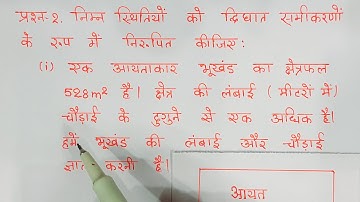 प्रश्न-2. निम्न स्थितियों को द्विघात समीकरणों
के रूप में निरूपित कीजिए:
(i) एक आयताकार भूखंड का क्षेत्रफल
528m² है। क्षेत्र की लंबाई (मीटरों में)
चौड़ाई के दुगुने से एक अधिक है।
हमें भूखंड की लंबाई और चौड़ाई
ज्ञात करनी है।
आयत